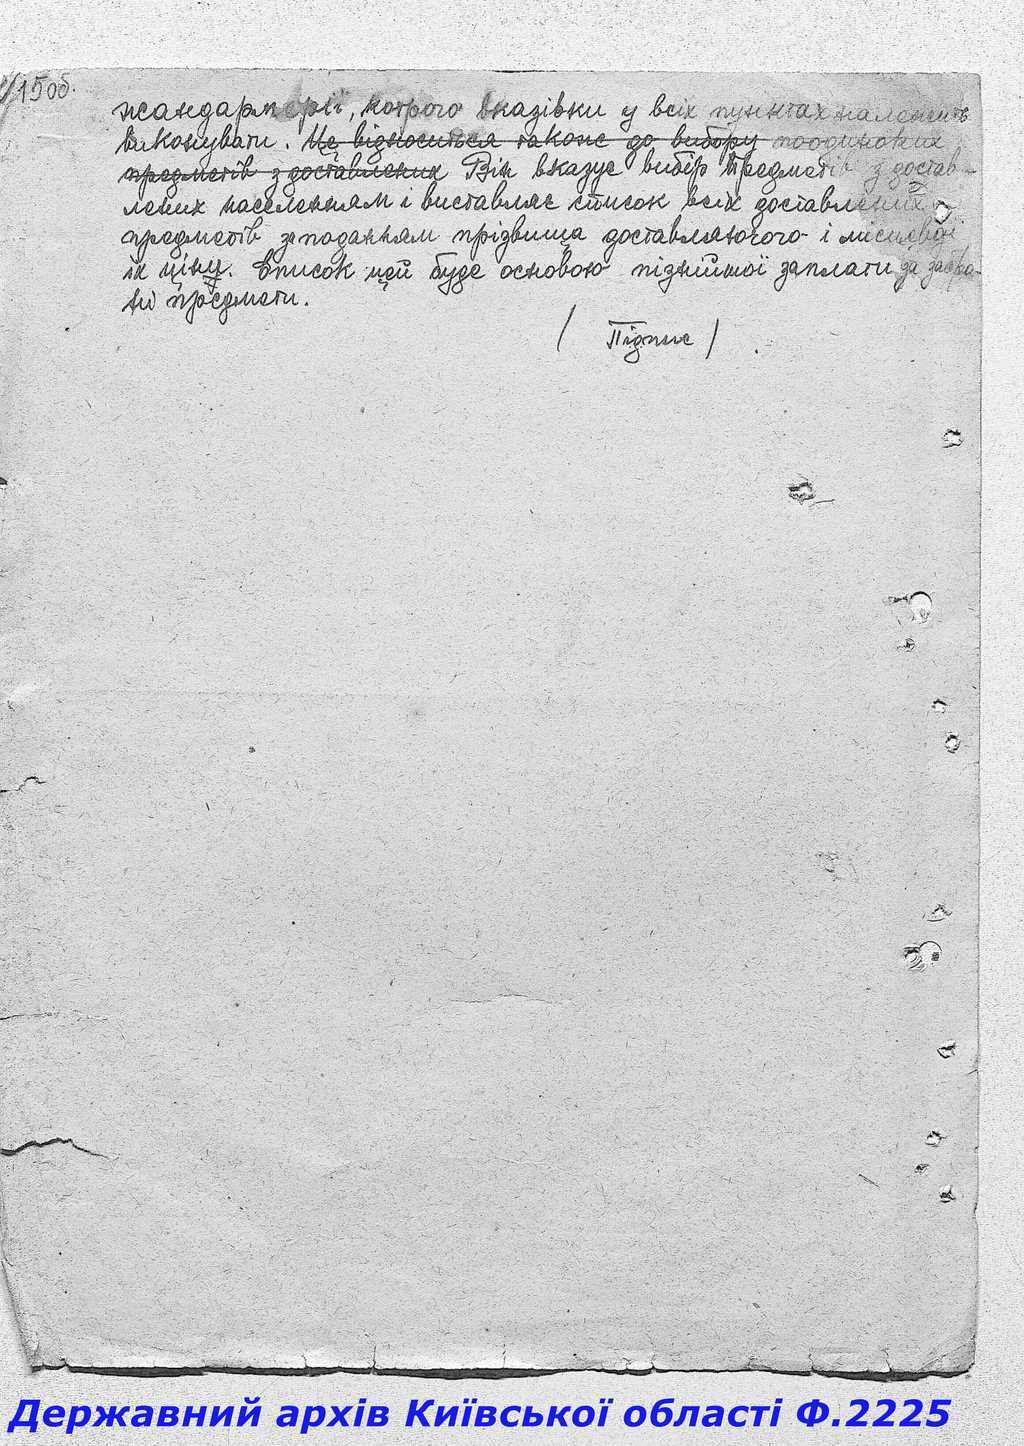 15об.
жандармерії, котрого вказівки у всіх пунктах належить
виконувати. Це відноситься також до вибору поодиноких
предметів з доставлених Він вказує вибір предметів з достав-
лених населенням і виставляє список всіх доставлених
предметів за поданням прізвища доставляючого і
їх ціну. Список цей буде основою пізнійшої заплати за забра-
ні предмети.
/ Підпис / .
Державний архів Київської області Ф.2225